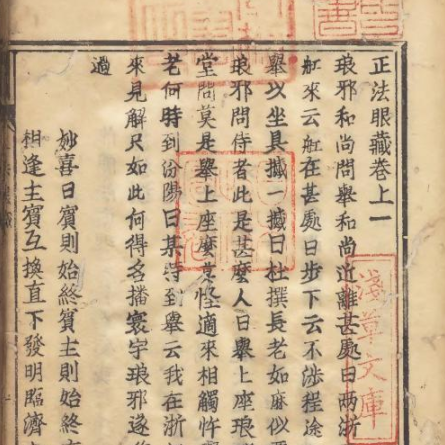 正法眼藏卷上一
琅邪和尚問舉和尚近離甚處曰兩浙
舡來云舡在甚處曰步下云不涉程途
舉以坐具摵一摵曰杜撰長老如麻似
琅邪問侍者此是甚麼人曰舉上座琅
堂問莫是舉上座麼莫怪適來相觸忤
老何時到汾陽曰某時到舉云我在浙
來見解只如此何得名播寰宇琅邪遂
過
妙喜曰賓則始終賓主則始終
相逢主賓互換直下發明臨濟
淺草文庫